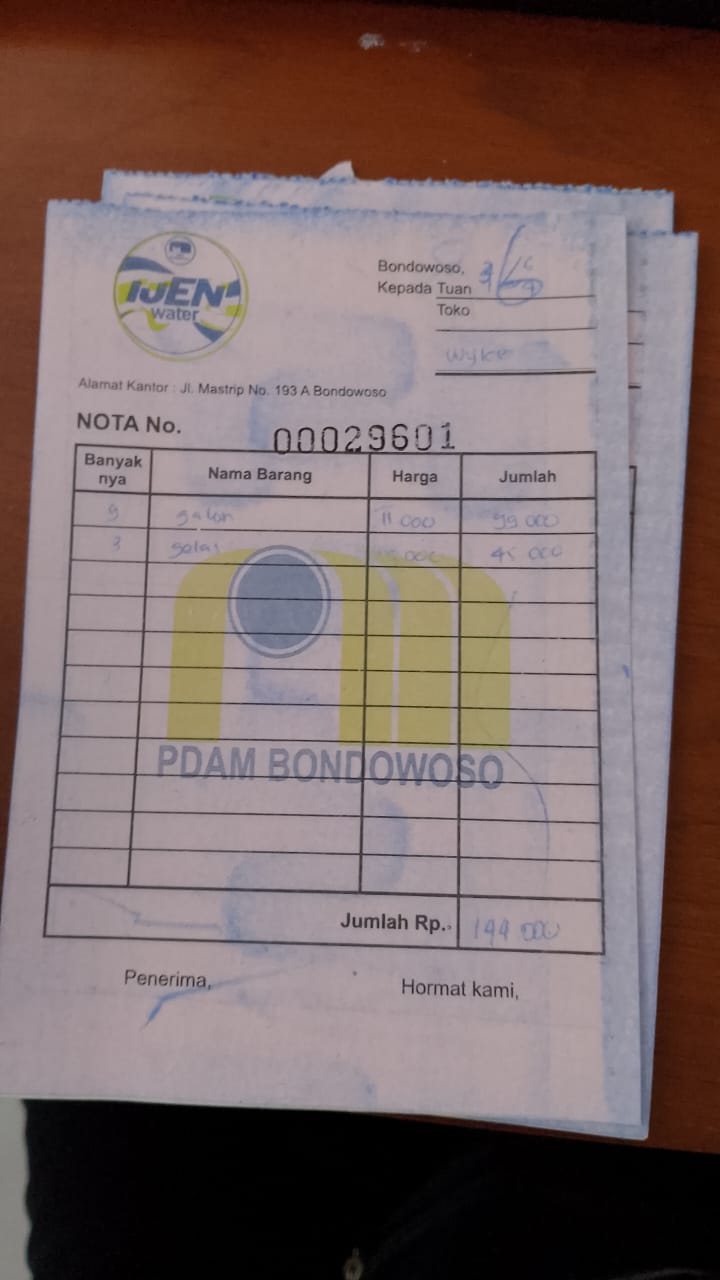 IJEN
water
Bondowoso,
Kepada Tuan
Toko
Alamat Kantor : Jl. Mastrip No. 193 A Bondowoso
NOTA No. 00029601
Banyak nya Nama Barang Harga Jumlah
9 galon 11 000 99 000
3 000 45 000
PDAM BONDOWOSO
Jumlah Rp. 144 000
Penerima, Hormat kami,